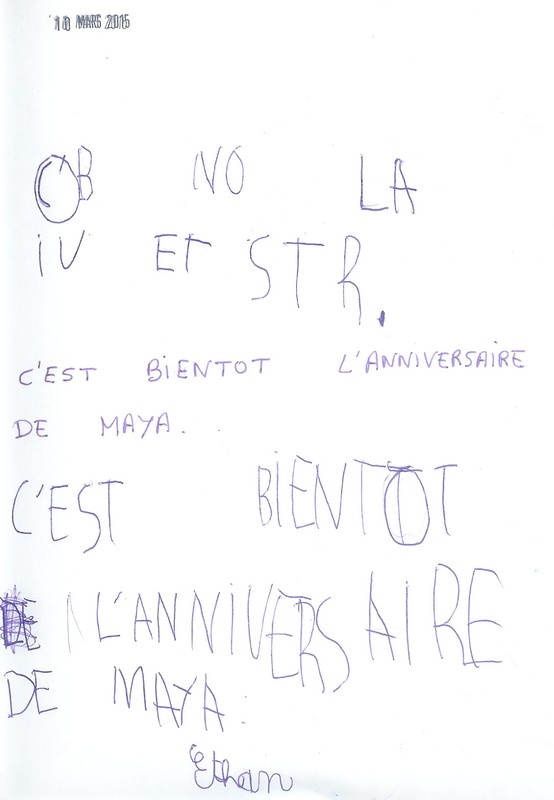 10 MARS 2015
OB NO LA
iV ET STR.
C'EST BiENTOT L'ANNIVERSAiRE
DE MAYA.
C'EST BiENTOT
L'ANNiVERSAIRE
DE MAYA.
Ethan